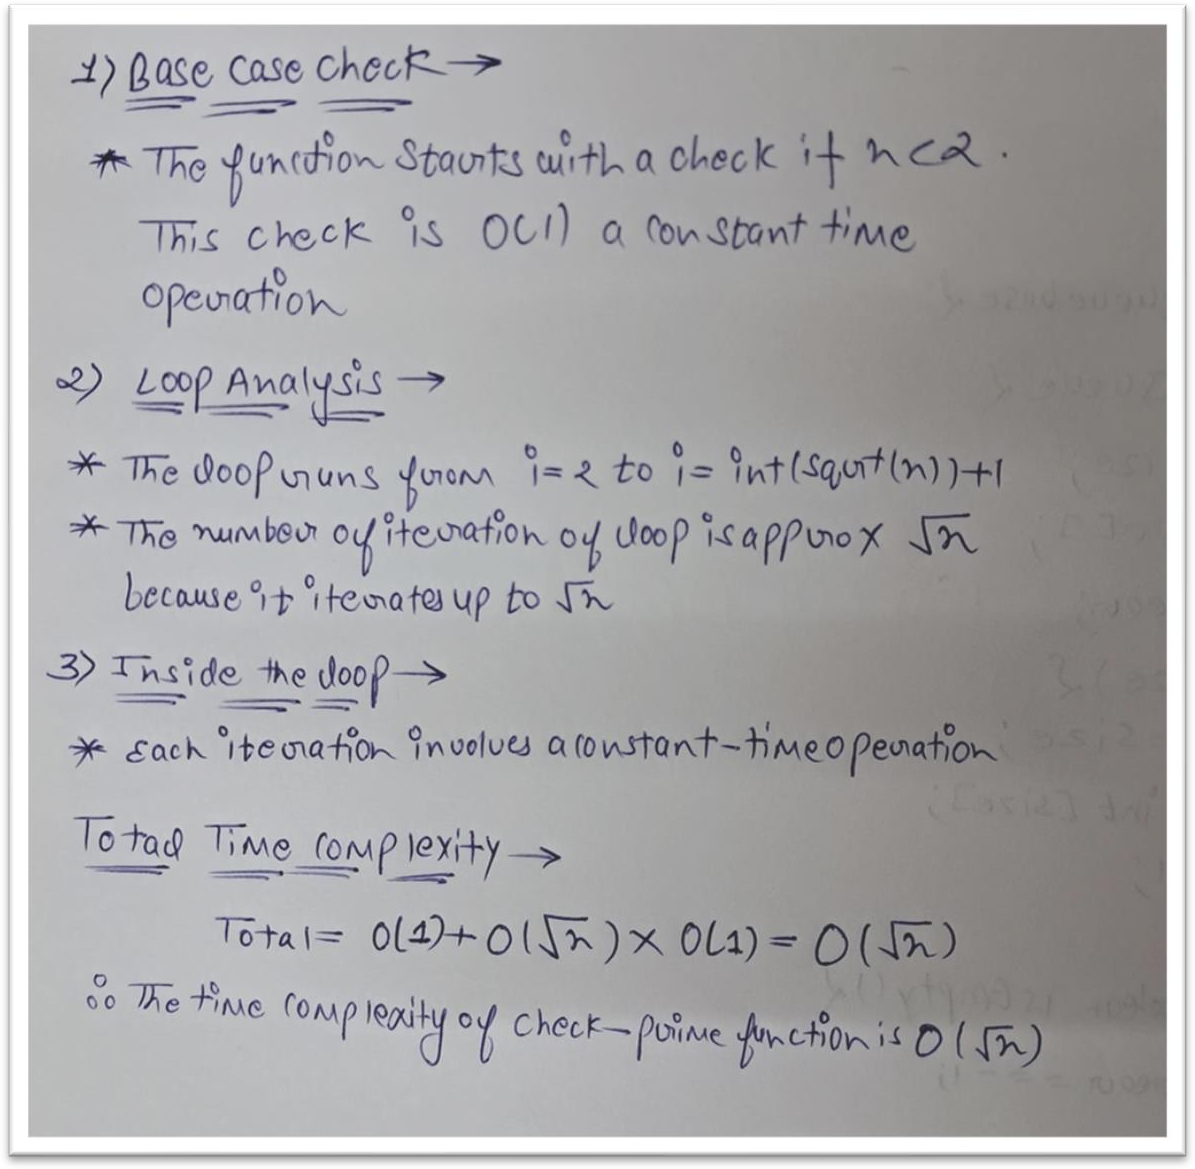 1) Base case check →
* The function starts with a check if n<2.
This check is O(1) a constant time
operation
2) Loop Analysis →
* The loop runs from i=2 to i= int(sqrt(n))+1
* The number of iteration of loop is approx √n
because it iterates up to √n
3) Inside the loop →
* Each iteration involves a constant-time operation
Total Time complexity →
Total= O(1)+O(√n)×O(1)=O(√n)
∴ The time complexity of check-prime function is O(√n)